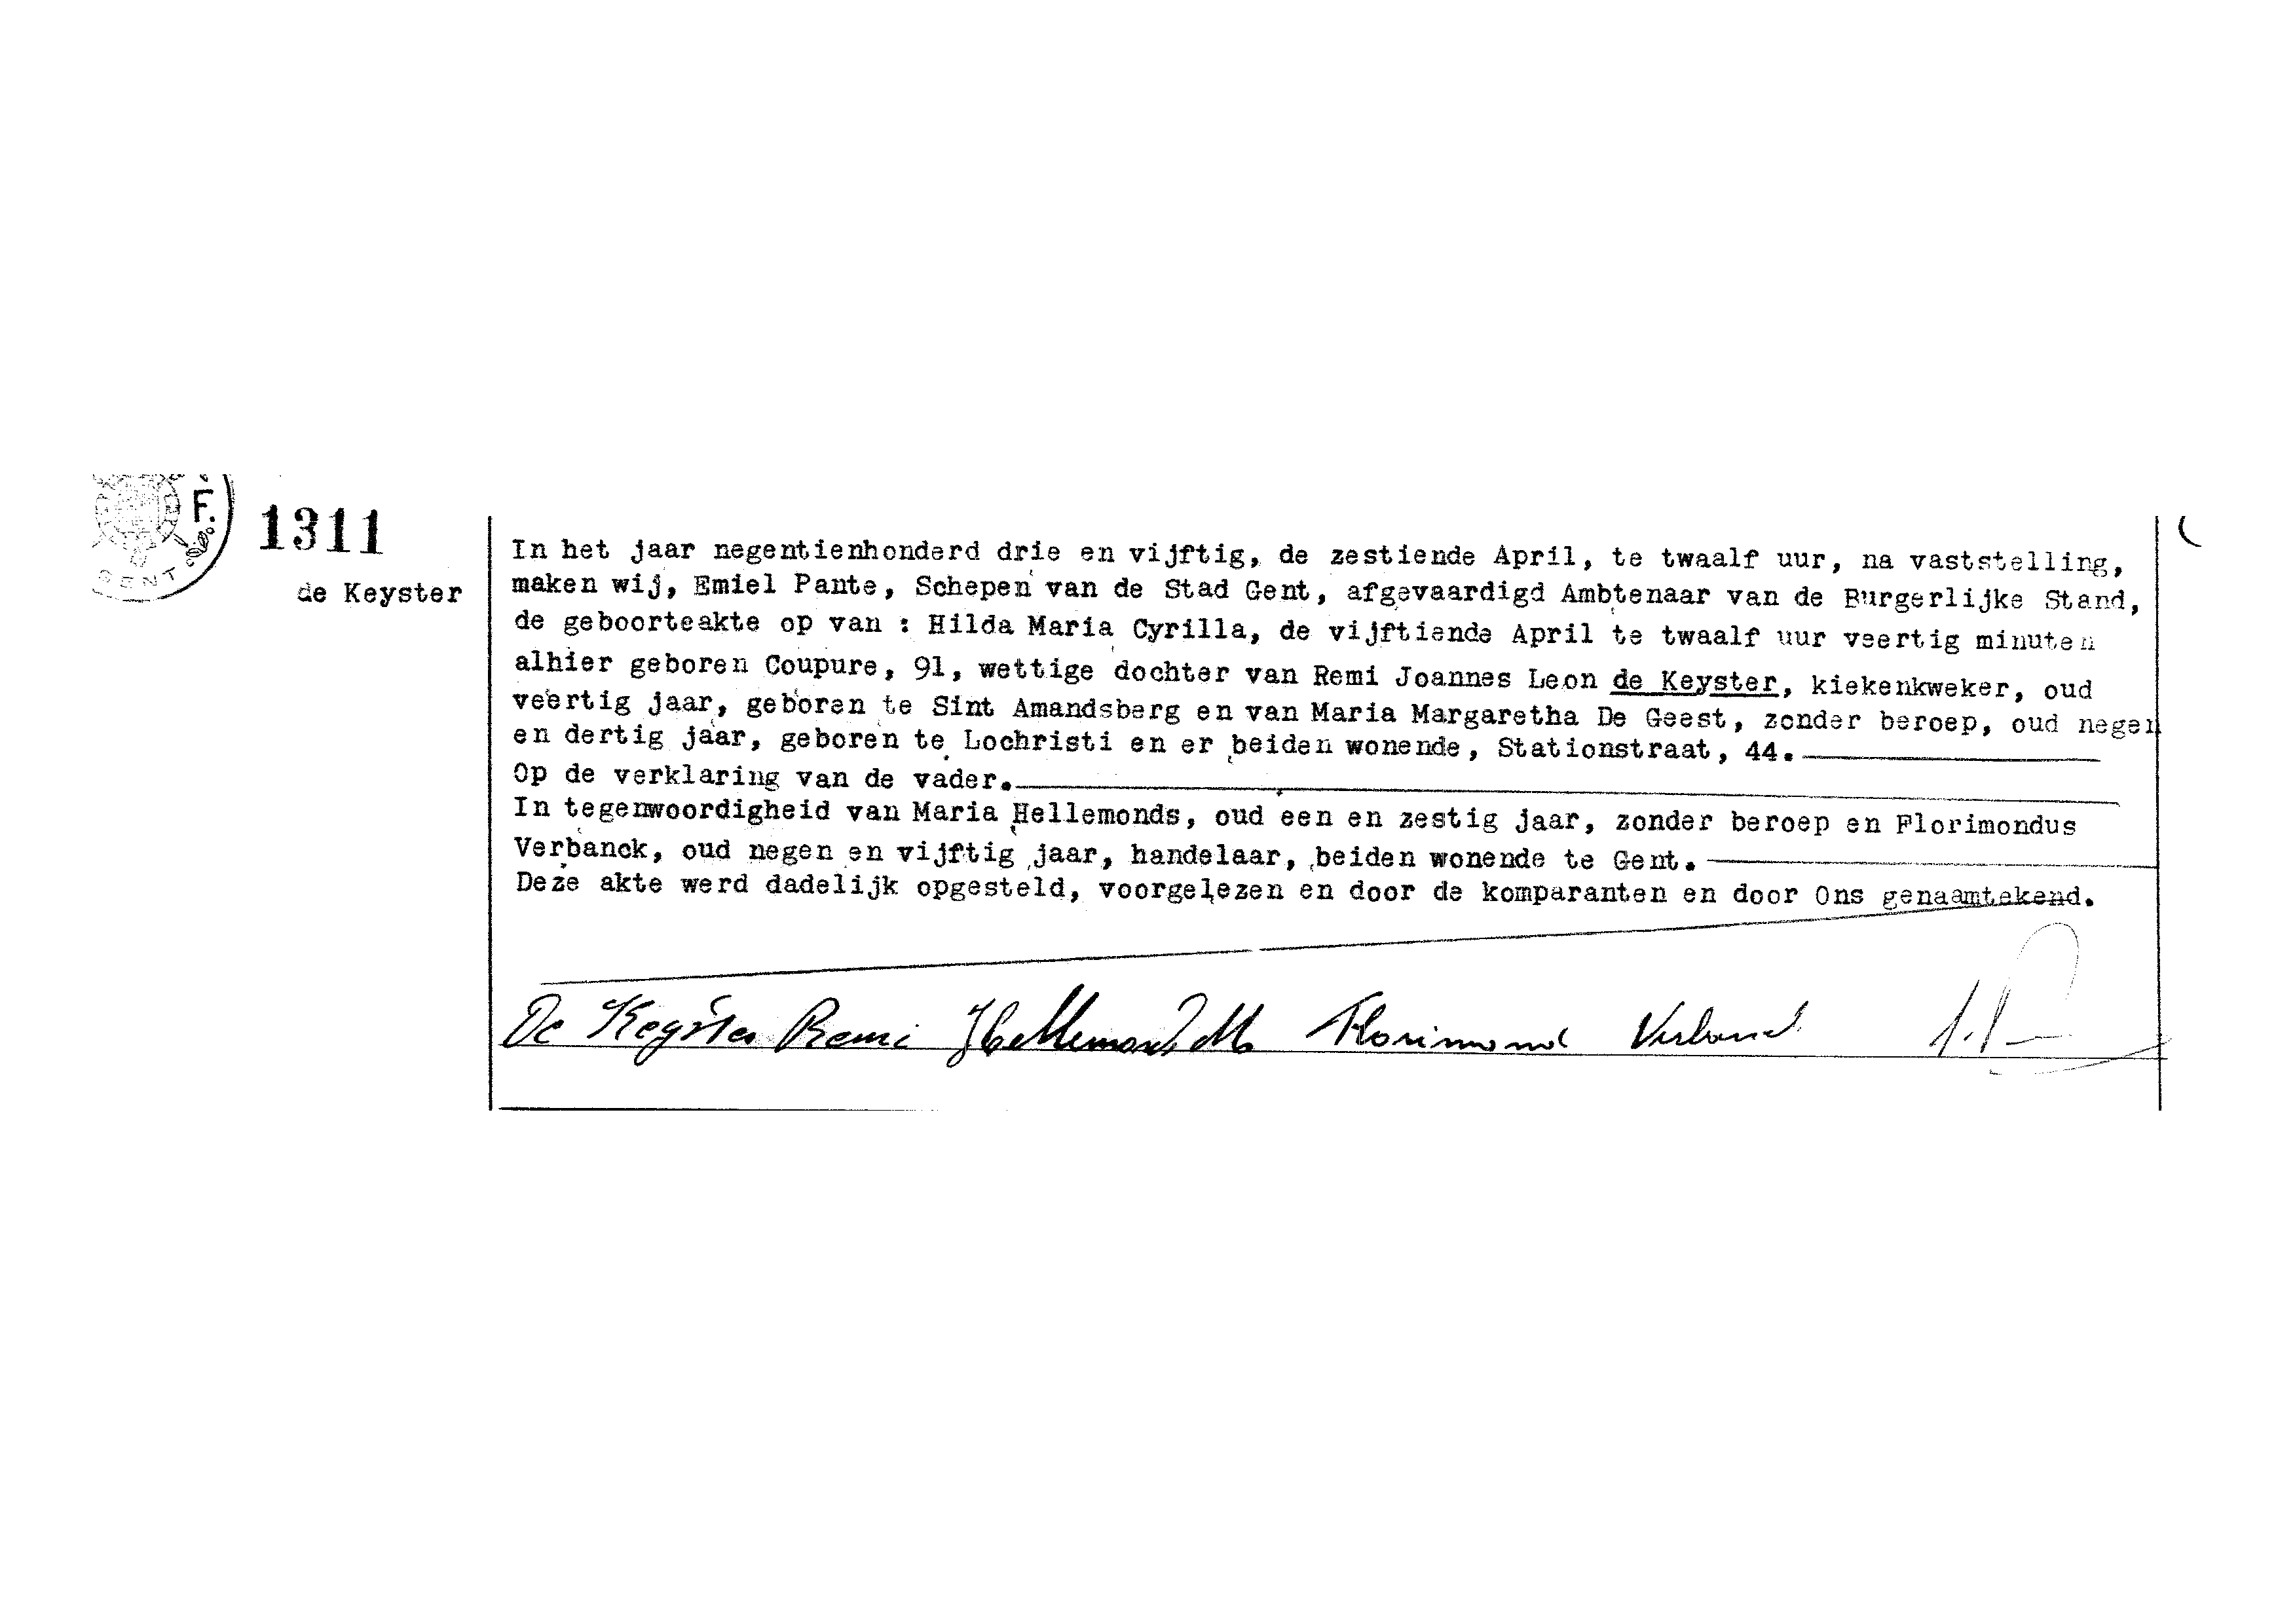 F.
GENT
1311
de Keyster
In het jaar negentienhonderd drie en vijftig, de zestiende April, te twaalf uur, na vaststelling,
maken wij, Emiel Pante, Schepen van de Stad Gent, afgevaardigd Ambtenaar van de Burgerlijke Stand,
de geboorteakte op van : Hilda Maria Cyrilla, de vijftiende April te twaalf uur veertig minuten
alhier geboren Coupure, 91, wettige dochter van Remi Joannes Leon de Keyster, kiekenkweker, oud
veertig jaar, geboren te Sint Amandsberg en van Maria Margaretha De Geest, zonder beroep, oud negen
en dertig jaar, geboren te Lochristi en er beiden wonende, Stationstraat, 44.
Op de verklaring van de vader.
In tegenwoordigheid van Maria Hellemonds, oud een en zestig jaar, zonder beroep en Florimondus
Verbanck, oud negen en vijftig jaar, handelaar, beiden wonende te Gent.
Deze akte werd dadelijk opgesteld, voorgelezen en door de komparanten en door Ons genaamtekend.
De Keyster Remi Hellemonds M Florimond Verbanck